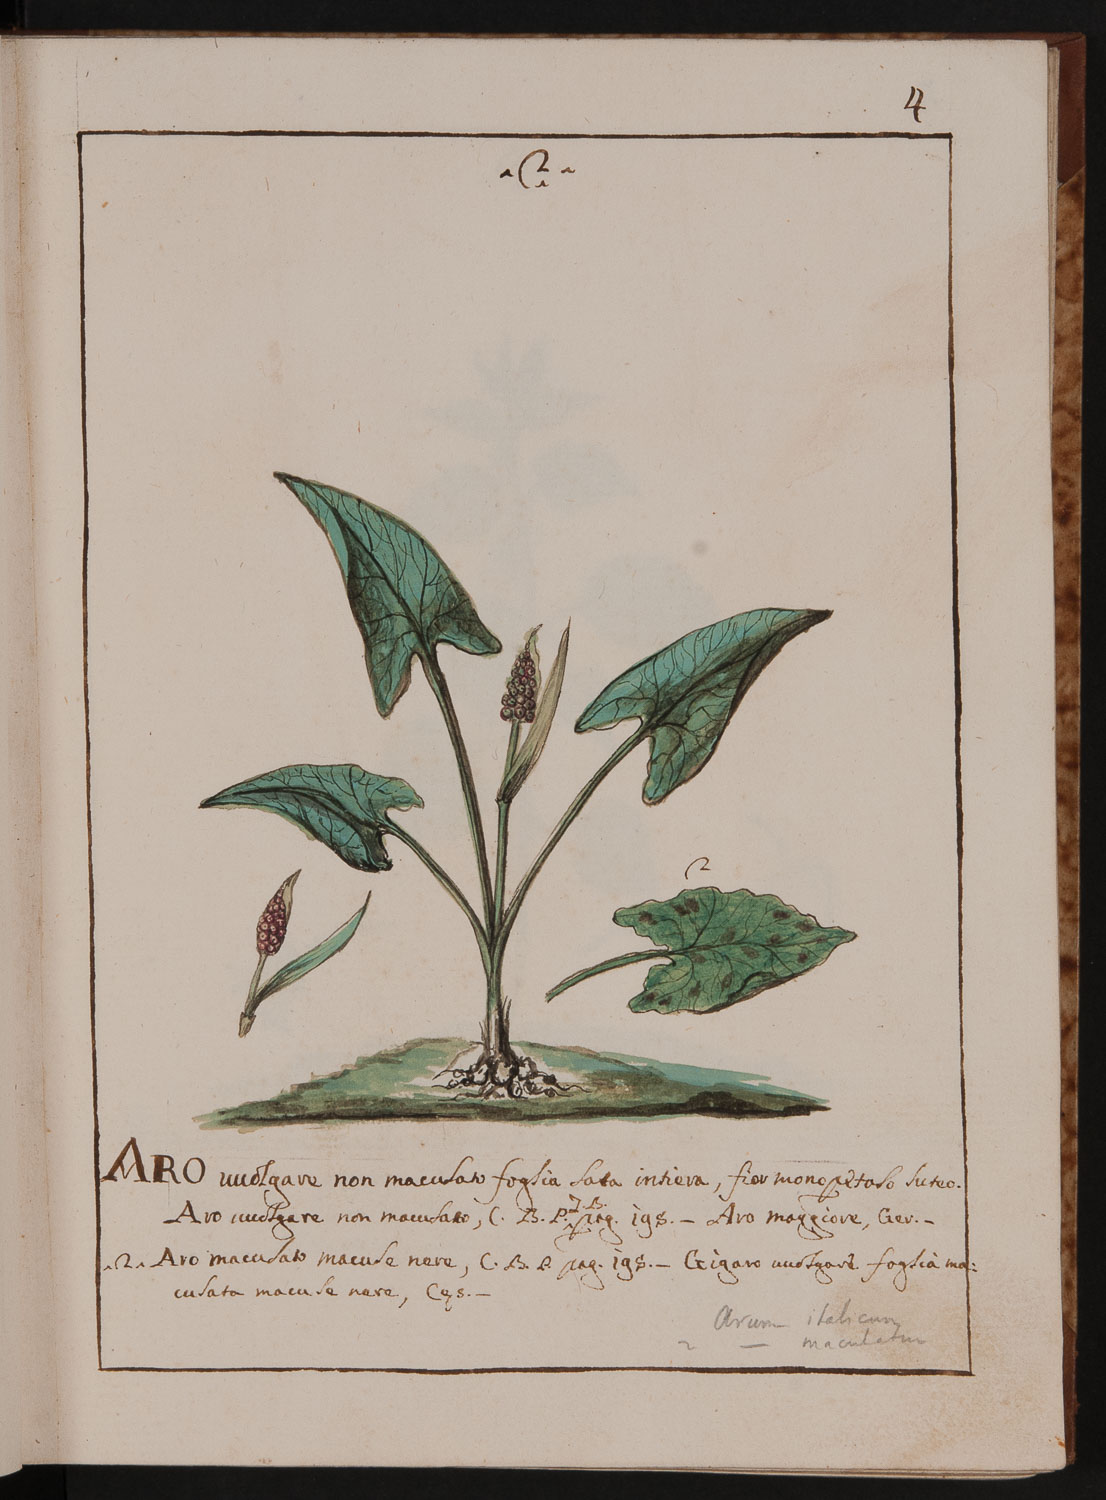 4
2
2
ARO uuolgare non maculato foglia lata intiera, fior monopetalo luteo.
Aro uuolgare non maculato, C. B. P. J. B. pag. 195. – Aro maggiore, Ger. –
2 Aro maculato macule nere, C. B. P. pag. 195. – Gigaro uuolgare foglia ma:
culata macule nere, Ces. –
Arum italicum
2 — maculatum